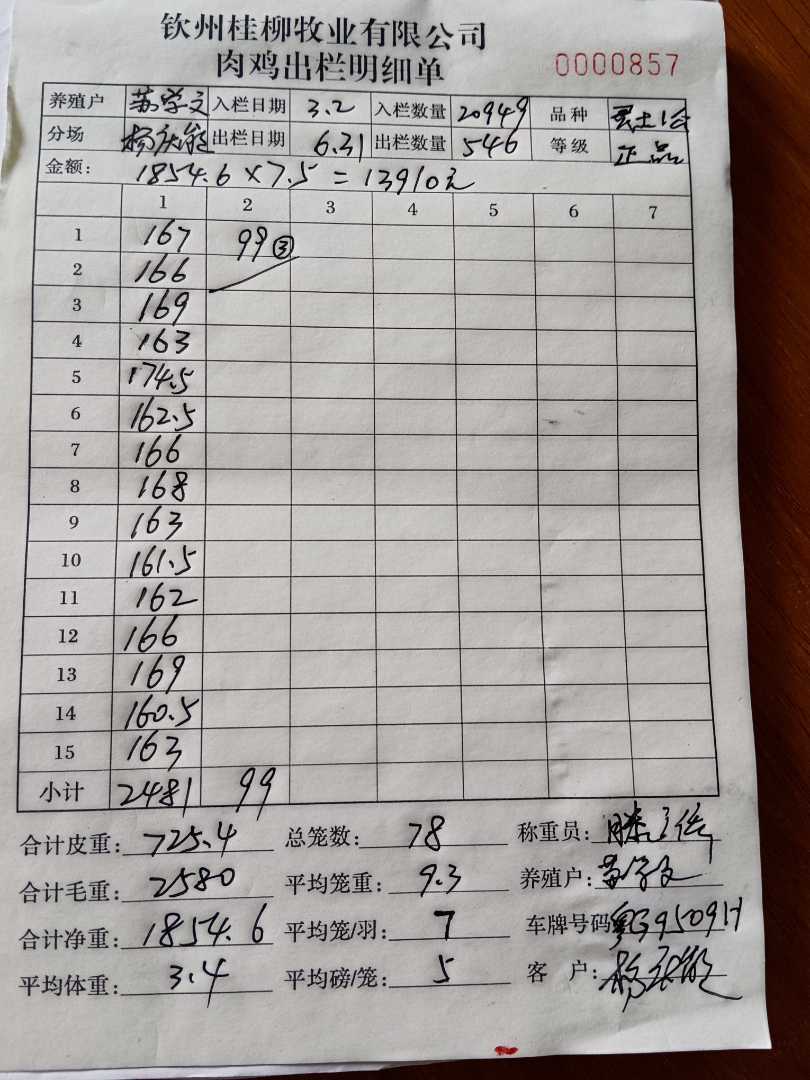 钦州桂柳牧业有限公司
肉鸡出栏明细单 0000857
养殖户 苏学文 入栏日期 3.2 入栏数量 20949 品种
分场 出栏日期 6.31 出栏数量 546 等级 正品
金额: 1854.6×7.5=13910元
1 2 3 4 5 6 7
1 167 99③
2 166
3 169
4 163
5 174.5
6 162.5
7 166
8 168
9 163
10 161.5
11 162
12 166
13 169
14 160.5
15 163
小计 2481 99
合计皮重: 725.4 总笼数: 78 称重员:
合计毛重: 2580 平均笼重: 9.3 养殖户: 苏学文
合计净重: 1854.6 平均笼/羽: 7 车牌号码
平均体重: 3.4 平均磅/笼: 5 客户: